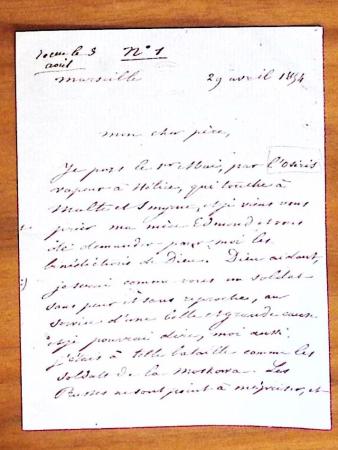 recu le 3
août
N° 1
Marseille 29 avril 1854
mon cher père,
Je pars le 1er Mai, par l'Osiris
vapeur à hélice, qui touche à
Malte et Smyrne, et je viens vous
prier ma mère Edmond et vous
de demander pour moi les
bénédictions de Dieu. Dieu aidant,
je serai comme vous un soldat
sans peur et sans reproches, au
service d'une belle et grande cause
et je pourrai dire, moi aussi
j'étais à telle bataille comme les
soldats de la Moskowa. Les
Russes ne sont point à mépriser, et